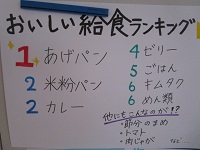 おいしい給食ランキング
1 あげパン
2 米粉パン
2 カレー
4 ゼリー
5 ごはん
6 キムタク
6 めん類
他にもこんなのが!!?
・節分のまめ
・トマト
・肉じゃが
など